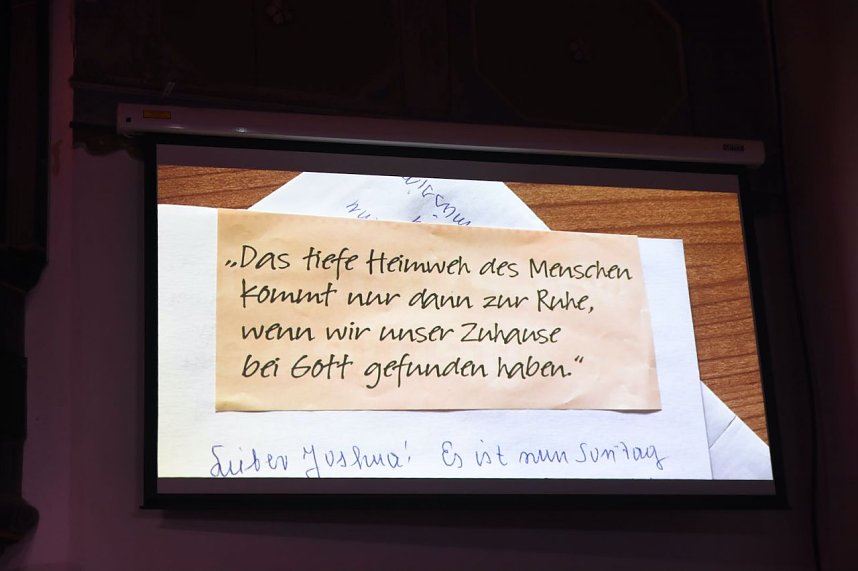 „Das tiefe Heimweh des Menschen
kommt nur dann zur Ruhe,
wenn wir unser Zuhause
bei Gott gefunden haben.“
Lieber Joshua! Es ist nun Sonntag